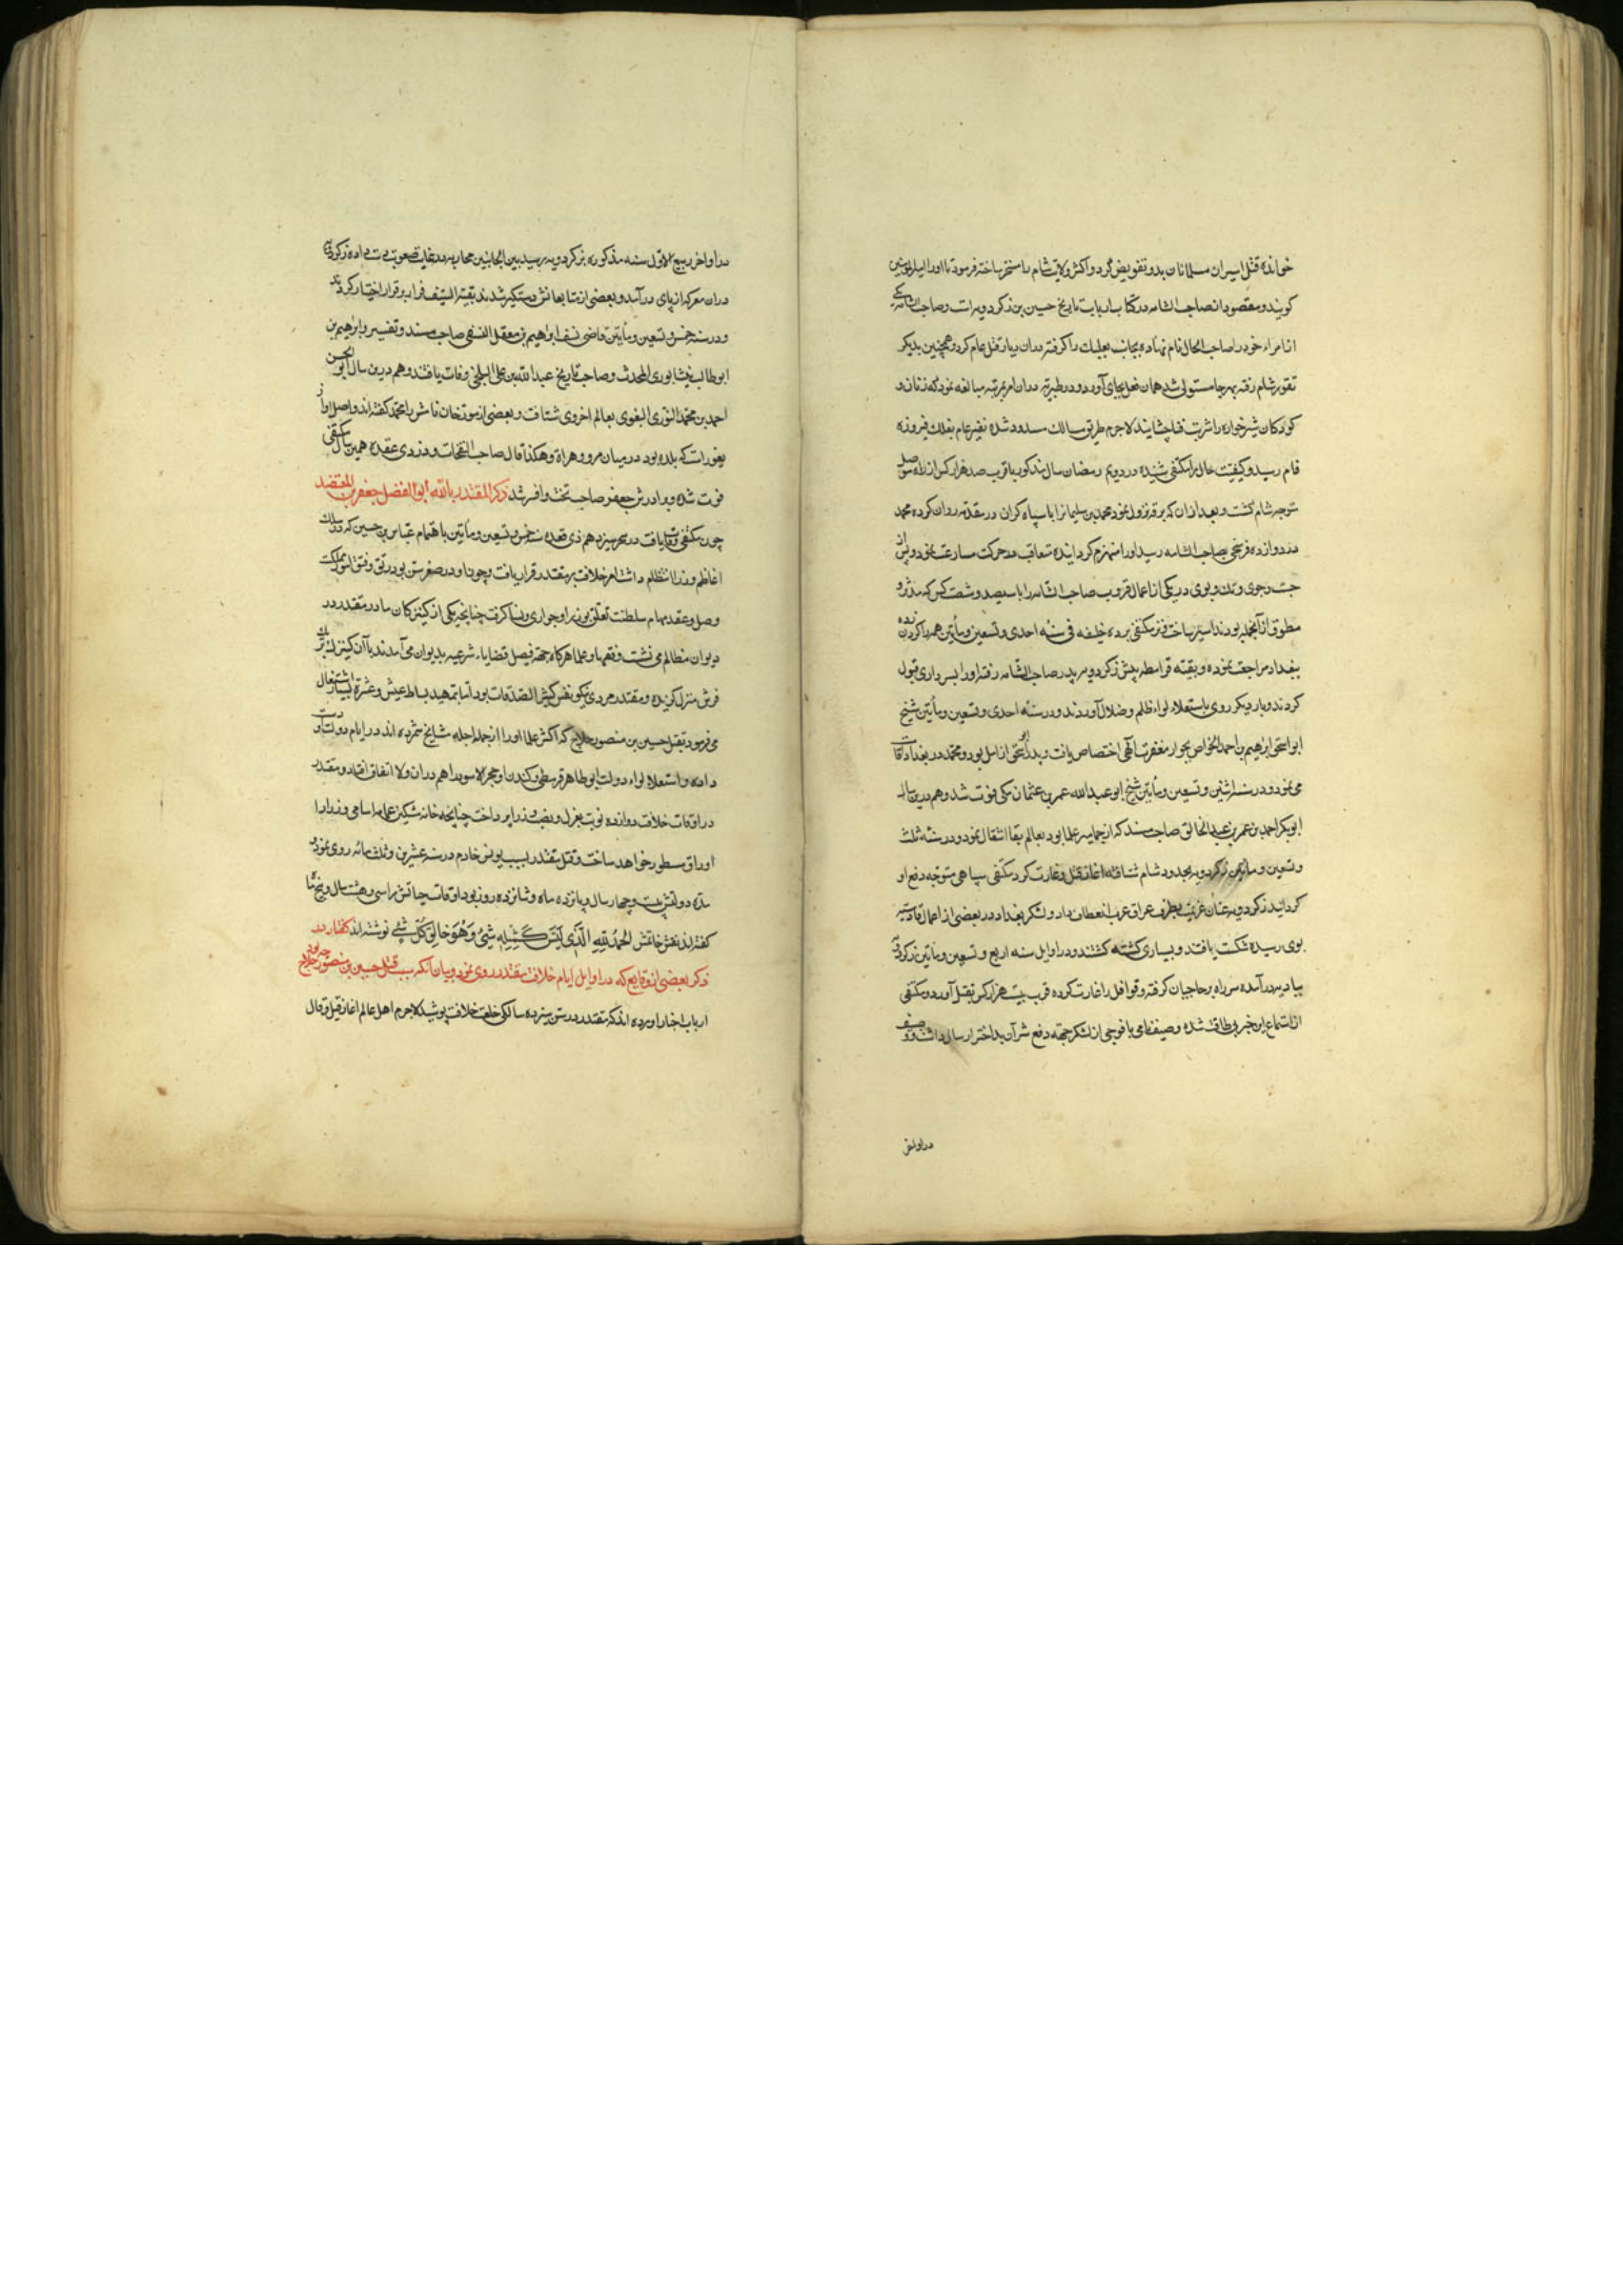 خوانده قتل اسیران مسلمانان بدو تفویض کرد و اکثر ولایت شام را مسخر ساخته فرمود تا او را امیرالمومنین
کویند و مقصود از صاحب الشامه در کتاب ارباب تاریخ حسین بن زکرویه است و صاحب الشامه یکی
از امراء خود را صاحب الحال نام نهاده بجانب بعلبک را کرفته در آن دیار قتل عام کرد و همچنین بدیکر
شام رفته بهر جا مستولی شد همان فعل بجای آورد و در طبریه در آن امر بمرتبه مبالغه نمود که زنان و
کودکان شیرخواره را شربت فنا چشانید لاجرم طریق مسالک مسدود شده نفیر عام بفلک فیروزه
فام رسید و کیفیت حال را مکتفی شنیده در دویم رمضان سال مذکور با قرب صد هزار کس از راه موصل
متوجه شام کشت و بعد از آن که برقه نزول نمود محمد بن سلیمان را با سپاه کران در مقدمه روان کرده محمد
در دوازده فرسخی بصاحب الشامه رسید او را منهزم کردانیده تعاقب در حرکت مسارعت نمود و پس از
جست و جوی و تک و پوی در یکی از اعمال صاحب الشامه را با سیصد و شصت کس که مدثر و
مطوق از آنجمله بودند اسیر ساخت نزد مکتفی برده خلیفه فی سنه احدی و تسعین و مأتین همه را کردن زده
ببغداد مراجعت نموده و بقیه قرامطه پیش زکرویه پدر صاحب الشامه رفته او را بسرداری قبول
کردند و بار دیکر روی باستعلاء لواء ظلم و ضلال آوردند و در سنه احدی و تسعین و مأتین شیخ
ابو اسحق ابراهیم بن احمد الخواص بجوار مغفرت الهی اختصاص یافت و پدر ابو اسحق از آمل بود و محمد در بغداد اقامت
می نمود و در سنه اثنین و تسعین و مأتین شیخ ابو عبدالله عمر بن عثمان مکی فوت شد و هم درین سال
ابوبکر احمد بن عمر بن عبدالخالق صاحب مسند که از جماهیر علما بود بعالم بقا انتقال نمود و در سنه ثلث
و تسعین و مأتین زکرویه بحدود شام شتافته آغاز قتل و غارت کرد مکتفی سپاهی متوجه دفع او
کردانید زکرویه عنان عزیمت بطرف عراق عرب انعطاف داد و لشکر بغداد در بعضی از اعمال قادسیه
بوی رسیده شکست یافتند و بسیاری کشته کشتند و در اوایل سنه اربع و تسعین و مأتین زکرویه
ببادیه در آمده سر راه بر حاجیان کرفته و قوافل را غارت کرده قرب بیست هزار کس بقتل آورد و مکتفی
از استماع این خبر بی طاقت شده وصیف نامی با فوجی از لشکر جهة دفع شر آن بد اختر ارسال داشت و وصیف
در اواخر
در اواخر ربیع الاول سنه مذکوره بزکرویه رسید بین الجانبین محاربه در غایت صعوبت دست داده زکرویه
در آن معرکه از پای درآمد و بعضی از متابعانش دستکیر شدند بقیة السیف فرار بر قرار اختیار کردند
و در سنه خمس و تسعین و مأتین قاضی نسف ابراهیم بن معقل النسفی صاحب مسند و تفسیر و ابراهیم بن
ابو طالب نیشابوری المحدث و صاحب تاریخ عبدالله بن علی البلخی وفات یافتند و هم درین سال ابو الحسن
احمد بن محمد النوری البغوی بعالم اخروی شتافت و بعضی از مورخان نامش را محمد کفته اند و اصل او از
بغور است که بلده بود در میان مرو و هراة و هکذا قال صاحب النفحات و در ذی قعده همین سال مکتفی
فوت شده برادرش جعفر صاحب تخت و افسر شد ذکر المقتدر بالله ابو الفضل جعفر بن المعتضد
چون مکتفی وفات یافت در سحر سیزدهم ذی قعده سنه خمس و تسعین و مأتین باهتمام عباس بن حسین که در سلک
اعاظم وزرا انتظام داشت امر خلافت بر مقتدر قرار یافت و چون او در صغر سن بود رتق و فتق امور مملکت
و حل و عقد مهام سلطنت تعلق بوزرا و جواری و نسا کرفت چنانچه یکی از کنیزکان مادر مقتدر در
دیوان مظالم می نشست و فقها و علما هرکاه جهة فیصل قضایاء شرعیه بدیوان می آمدند با آن کنیزک بر یک
فرش منزل کزیده و مقتدر مردی نیکو نفس کثیر الصدقات بود اما بتمهید بساط عیش و عشرت بسیار اشتغال
می فرمود قتل حسین بن منصور حلاج که اکثر علما او را از جمله اجله مشایخ شمرده اند در ایام دولت او دست
داده و استعلاء لواء دولت ابو طاهر قرمطی و کندن او حجر الاسود را هم در آن ولا اتفاق افتاد و مقتدر
در اوقات خلافت دوازده نوبت بعزل و نصب وزرا پرداخت چنانچه خامه شکین عمامه اسامی وزرا را
اوراق مسطور خواهد ساخت و قتل مقتدر بسبب مونس خادم در سنه عشرین و ثلثمائه روی نمود
مدة دولتش بیست و چهار سال و یازده ماه و شانزده روز بود اوقات حیاتش را سی و هشت سال و پنج ماه
کفته اند نقش خاتمش الحمد لله الذی لیس کمثله شیء و هو خالق کل شیء نوشته اند کفتار در
ذکر بعضی از وقایع که در اوایل ایام خلافت مقتدر روی نمود و بیان آنکه سبب قتل حسین بن منصور حلاج چه بود
ارباب اخبار آورده اند که مقتدر در سن سیزده سالکی خلعت خلافت پوشید لاجرم اهل عالم آغاز قیل و قال